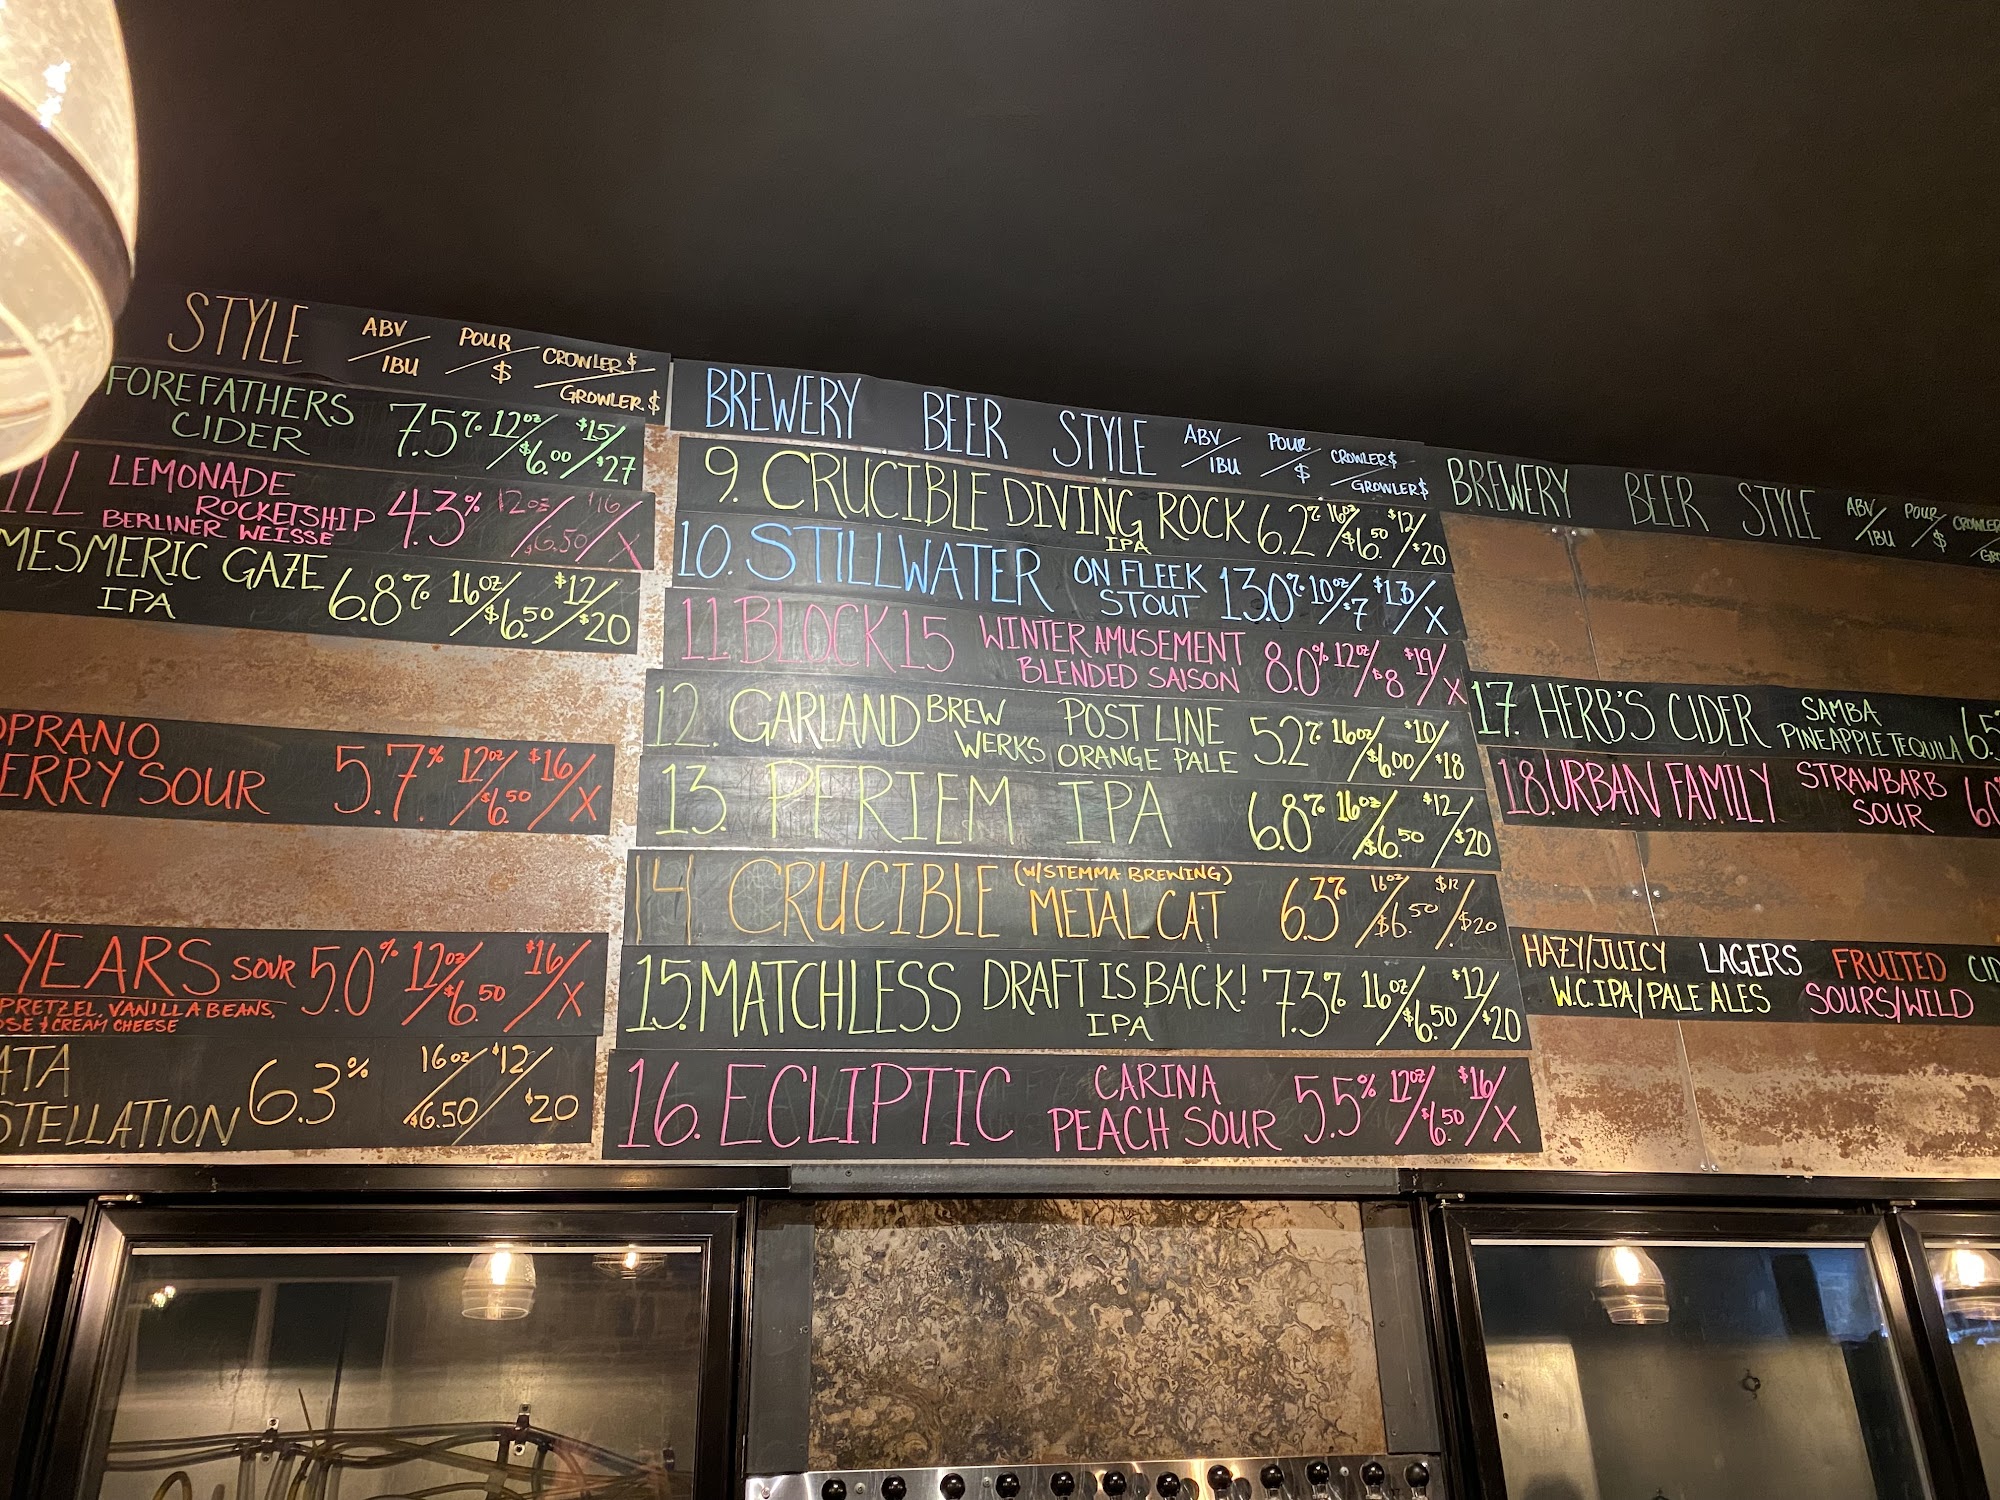 STYLE ABV/IBU POUR/$ CROWLER $/GROWLER $
FOREFATHERS
CIDER 7.5% 12oz/$6.00 $15/$27
LEMONADE
ROCKETSHIP
BERLINER WEISSE 4.3% 12oz/$6.50 $16/X
MESMERIC GAZE
IPA 6.8% 16oz/$6.50 $12/$20
PRANO
ERRY SOUR 5.7% 12oz/$6.50 $16/X
YEARS SOUR 5.0% 12oz/$6.50 $16/X
PRETZEL, VANILLA BEANS,
OSE & CREAM CHEESE
ATA
STELLATION 6.3% 16oz/$6.50 $12/$20
BREWERY BEER STYLE ABV/IBU POUR/$ CROWLER $/GROWLER $
9. CRUCIBLE DIVING ROCK
IPA 6.2% 16oz/$6.50 $12/$20
10. STILLWATER ON FLEEK
STOUT 13.0% 10oz/$7 $13/X
11. BLOCK 15 WINTER AMUSEMENT
BLENDED SAISON 8.0% 12oz/$8 $19/X
12. GARLAND BREW
WERKS POST LINE
ORANGE PALE 5.2% 16oz/$6.00 $10/$18
13. PERIEM IPA 6.8% 16oz/$6.50 $12/$20
14 CRUCIBLE (W/STEMMA BREWING)
METAL CAT 6.3% 16oz/$6.50 $12/$20
15. MATCHLESS DRAFT IS BACK!
IPA 7.3% 16oz/$6.50 $12/$20
16. ECLIPTIC CARINA
PEACH SOUR 5.5% 12oz/$6.50 $16/X
BREWERY BEER STYLE ABV/IBU POUR/$ CROWLER
17. HERB'S CIDER SAMBA
PINEAPPLE TEQUILA 6.5
18. URBAN FAMILY STRAWBARB
SOUR 6.0
HAZY/JUICY LAGERS FRUITED CID
W.C. IPA/PALE ALES SOURS/WILD